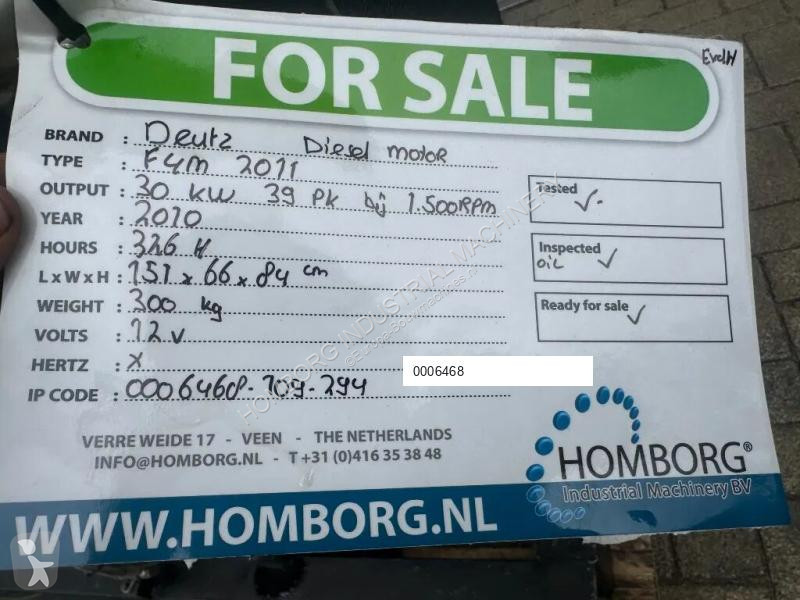 FOR SALE
EvdH
BRAND : Deutz Diesel motor
TYPE : F4M 2011
OUTPUT : 30 kW 39 Pk bij 1.500RPM
YEAR : 2010
HOURS : 326 H
L x W x H : 151 x 66 x 84 cm
WEIGHT : 300 kg
VOLTS : 12 v
HERTZ : x
IP CODE : 0006468-109-294
Tested ✓
Inspected
OIL ✓
Ready for sale ✓
0006468
HOMBORG INDUSTRIAL MACHINERY
VERRE WEIDE 17 - VEEN - THE NETHERLANDS
INFO@HOMBORG.NL - T +31 (0)416 35 38 48
HOMBORG®
Industrial Machinery BV
WWW.HOMBORG.NL